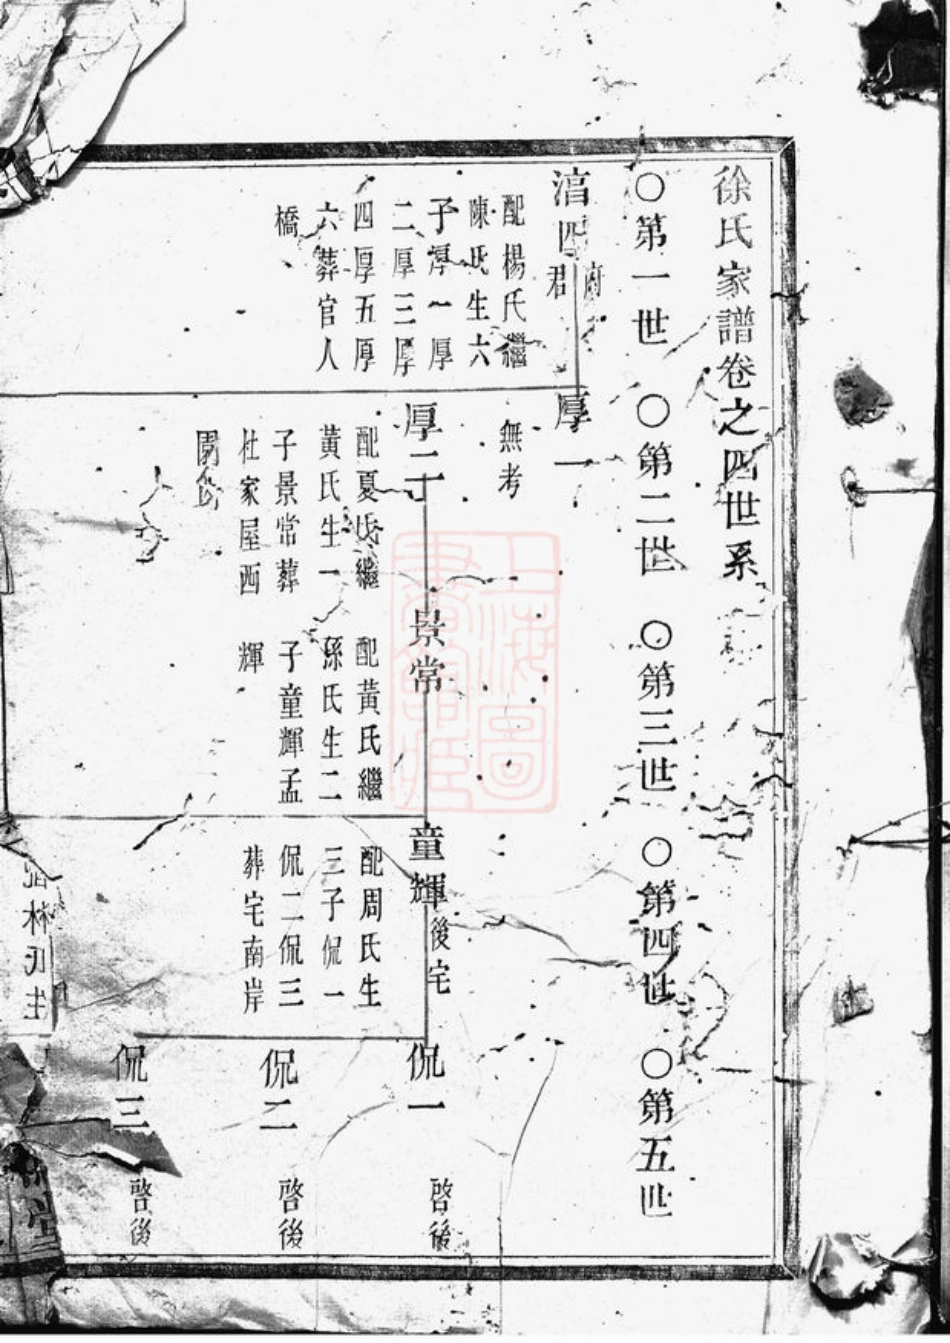 徐氏家譜卷之四世系
○第一世 ○第二世 ○第三世 ○第四世 ○第五世
府
君
配楊氏繼
陳氏生六
子厚一厚
二厚三厚
四厚五厚
六葬官人
橋
厚一
無考
厚二
配夏氏繼
黃氏生一
子景常葬
杜家屋西
園後
景常
配黃氏繼
孫氏生二
子童輝孟
輝
童輝
後宅
配周氏生
三子侃一
侃二侃三
葬宅南岸
侃一
啓後
侃二
啓後
侃三
啓後
上海圖
書館藏